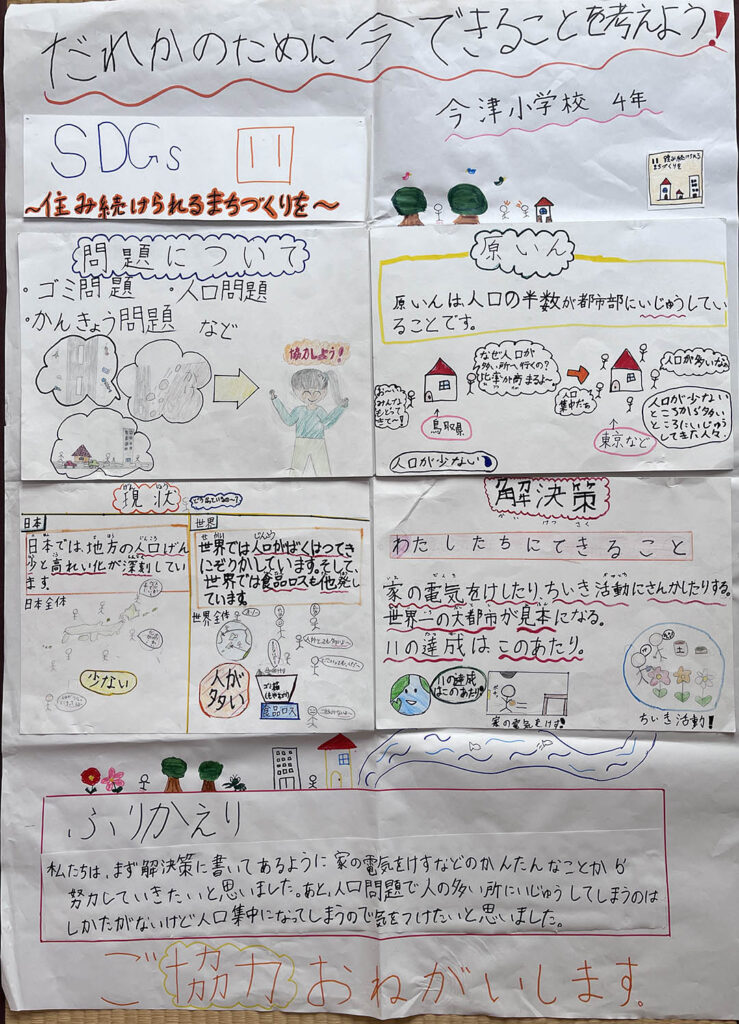 だれかのために今できることを考えよう!
今津小学校 4年
SDGs 11
~住み続けられるまちづくりを~
11 住み続けられる
まちづくりを
問題について
・ゴミ問題 ・人口問題
・かんきょう問題 など
協力しよう!
原いん
原いんは人口の半数が都市部にいじゅうしてい
ることです。
なぜ人口が
多い所へ行くの?
お〜い
みんな
もどって
きて〜!
鳥取県
人口が少ない
人口
集中だあ
人口が多いなぁ
人口が少ない
ところから多い
ところにいじゅう
してきた人々。
東京など
現状
げんじょう
日本
日本では、地方の人口げん
少と高れい化が深刻してい
ます。
日本全体
少ない
世界
世界では人口がばくはつてき
にぞうかしています。そして、
世界では食品ロスも他発し
ています。
世界全体
人が
多い
ゴミ箱
食品ロス
解決策
かいけつさく
わたしたちにできること
家の電気をけしたり、ちいき活動にさんかしたりする。
世界一の大都市が見本になる。
11の達成はこのあたり。
11の達成
はこのあたり!
家の電気をけす!
ちいき活動!
ふりかえり
私たちは、まず解決策に書いてあるように家の電気をけすなどのかんたんなことから
努力していきたいと思いました。あと、人口問題で人の多い所にいじゅうしてしまうのは
しかたがないけど人口集中になってしまうので気をつけたいと思いました。
ご協力おねがいします。